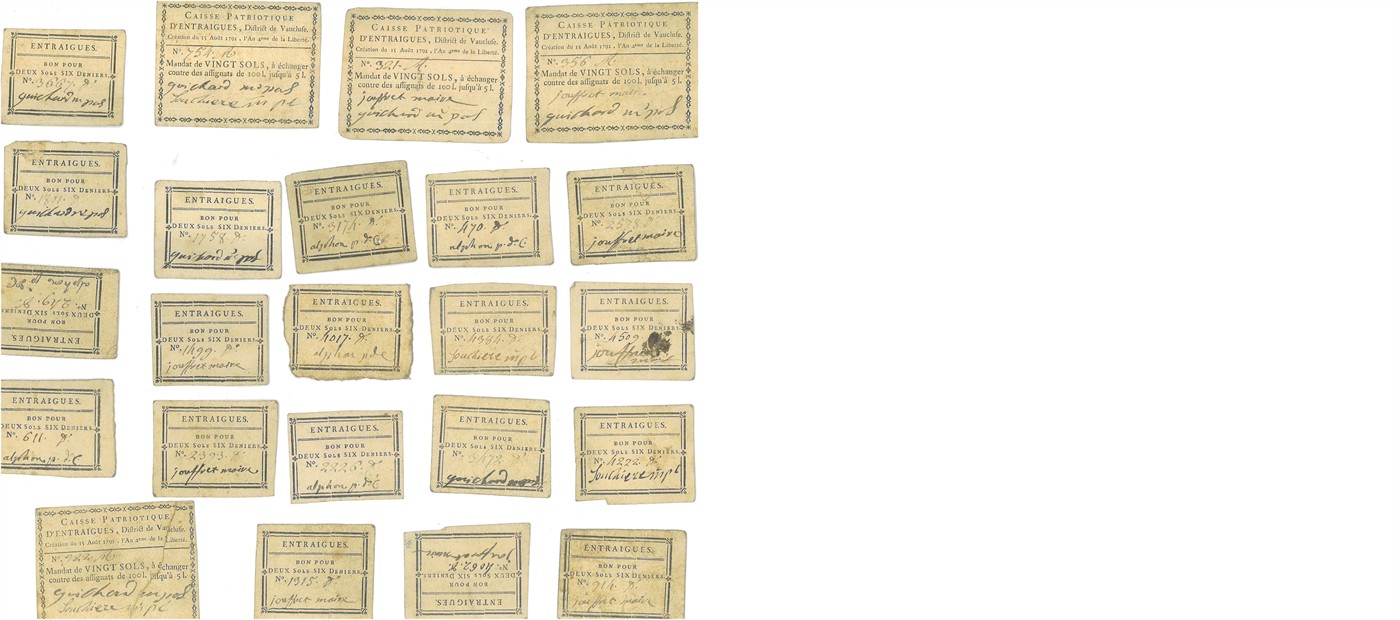 ENTRAIGUES.
BON POUR
DEUX SOLS SIX DENIERS.
Nº.
guichard m'pal
CAISSE PATRIOTIQUE
D'ENTRAIGUES, District de Vaucluse.
Création du 15 Août 1791, l'An 4eme de la Liberté.
Nº. 754.
Mandat de VINGT SOLS, à échanger
contre des assignats de 100 l. jusqu'à 5 l.
guichard m'pal
Souchiere m'pl
CAISSE PATRIOTIQUE
D'ENTRAIGUES, District de Vaucluse.
Création du 15 Août 1791, l'An 4eme de la Liberté.
Nº. 321.
Mandat de VINGT SOLS, à échanger
contre des assignats de 100 l. jusqu'à 5 l.
jouffret maire
guichard m'pal
CAISSE PATRIOTIQUE
D'ENTRAIGUES, District de Vaucluse.
Création du 15 Août 1791, l'An 4eme de la Liberté.
Nº. 356
Mandat de VINGT SOLS, à échanger
contre des assignats de 100 l. jusqu'à 5 l.
jouffret maire
guichard m'pal
ENTRAIGUES.
BON POUR
DEUX SOLS SIX DENIERS.
Nº.
guichard m'pal
ENTRAIGUES.
BON POUR
DEUX SOLS SIX DENIERS.
Nº. 1758. d.
guichard m'pal
ENTRAIGUES.
BON POUR
DEUX SOLS SIX DENIERS.
Nº. 3174. d.
alphon p. d. C
ENTRAIGUES.
BON POUR
DEUX SOLS SIX DENIERS.
Nº. 470. d.
alphon p. d. C
ENTRAIGUES.
BON POUR
DEUX SOLS SIX DENIERS.
Nº. 2578. d.
jouffret maire
ENTRAIGUES.
BON POUR
DEUX SOLS SIX DENIERS.
Nº. 249. d.
alphon p. d. C
ENTRAIGUES.
BON POUR
DEUX SOLS SIX DENIERS.
Nº. 1499. d.
jouffret maire
ENTRAIGUES.
BON POUR
DEUX SOLS SIX DENIERS.
Nº. 4017. d.
alphon p. d. C
ENTRAIGUES.
BON POUR
DEUX SOLS SIX DENIERS.
Nº. 4384. d.
Souchiere m'pl
ENTRAIGUES.
BON POUR
DEUX SOLS SIX DENIERS.
Nº. 4509.
jouffret
maire
ENTRAIGUES.
BON POUR
DEUX SOLS SIX DENIERS.
Nº. 611. d.
alphon p. d. C
ENTRAIGUES.
BON POUR
DEUX SOLS SIX DENIERS.
Nº. 2393. d.
jouffret maire
ENTRAIGUES.
BON POUR
DEUX SOLS SIX DENIERS.
Nº. 2226. d.
alphon p. d. C
ENTRAIGUES.
BON POUR
DEUX SOLS SIX DENIERS.
Nº. 3472.
guichard
ENTRAIGUES.
BON POUR
DEUX SOLS SIX DENIERS.
Nº. 4222. d.
Souchiere m'pl
CAISSE PATRIOTIQUE
D'ENTRAIGUES, District de Vaucluse.
Création du 15 Août 1791, l'An 4eme de la Liberté.
Nº. 222.
Mandat de VINGT SOLS, à échanger
contre des assignats de 100 l. jusqu'à 5 l.
guichard m'pal
Souchiere m'pl
ENTRAIGUES.
BON POUR
DEUX SOLS SIX DENIERS.
Nº. 1315. d.
jouffret maire
ENTRAIGUES.
BON POUR
DEUX SOLS SIX DENIERS.
Nº. 4062. d.
jouffret maire
ENTRAIGUES.
BON POUR
DEUX SOLS SIX DENIERS.
Nº. 914. d.
jouffret maire